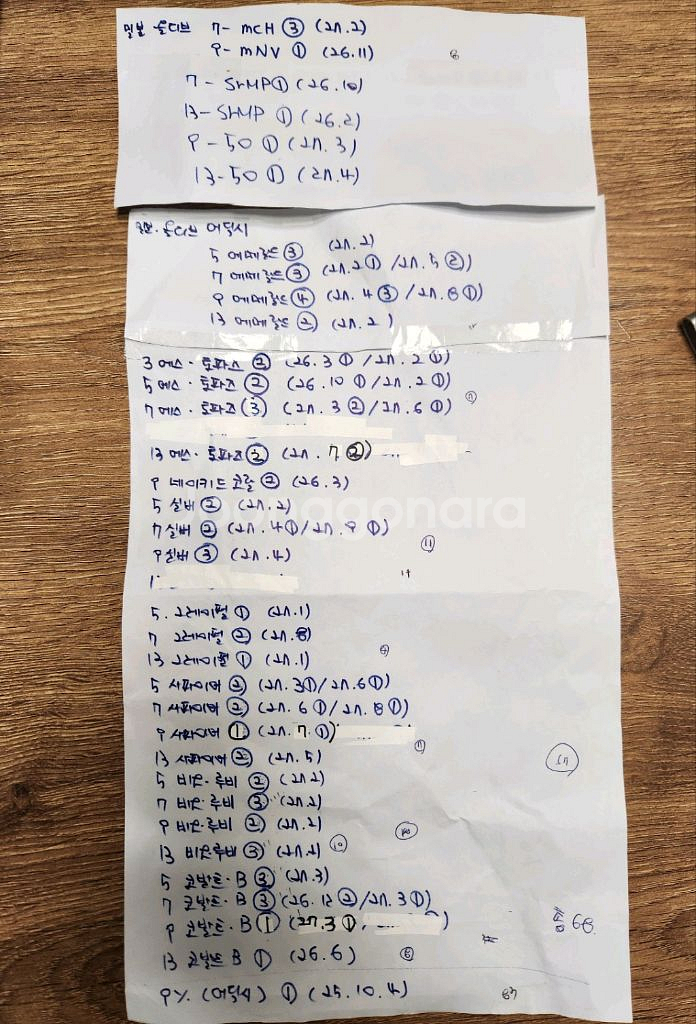 밀본 올디브 7- mCH ③ (27.2)
9- mNV ① (26.11)
⑧
7- SHMP ① (26.10)
13- SHMP ① (26.2)
9- 50 ① (27.3)
13-50 ① (27.4)
밀본. 올디브 어딕시
5 에메랄드 ③ (27.2)
7 에메랄드 ③ (27.2① /27.5②)
9 에메랄드 ④ (27.4③ /27.8①)
13 에메랄드 ② (27.2)
3 에스·토파즈 ② (26.3① /27.2①)
5 에스·토파즈 ② (26.10① /27.2①)
7 에스·토파즈 ③ (27.3② /27.6①)
13 에스·토파즈 ② (27.7②)
9 네이키드 코랄 ② (26.3)
joonggonara
5 실버 ② (27.2)
7 실버 ② (27.4① /27.9①)
9 실버 ③ (27.4)
⑪
5. 그레이펄 ① (27.1)
7 그레이펄 ② (27.8)
13 그레이펄 ① (27.1)
5 사파이어 ② (27.3① /27.6①)
7 사파이어 ② (27.6① /27.8①)
9 사파이어 ① (27.7①)
13 사파이어 ② (27.5)
5 비온·루비 ② (27.2)
7 비온·루비 ③ (27.2)
9 비온·루비 ② (27.2)
13 비온루비 ③ (27.2) ⑩
5 코발트·B ③ (27.3)
7 코발트·B ③ (26.12② /27.3①)
9 코발트·B ① (27.3①,
13 코발트 B ① (26.6) ⑧
68
9% (어딕시) ① (25.10.4)